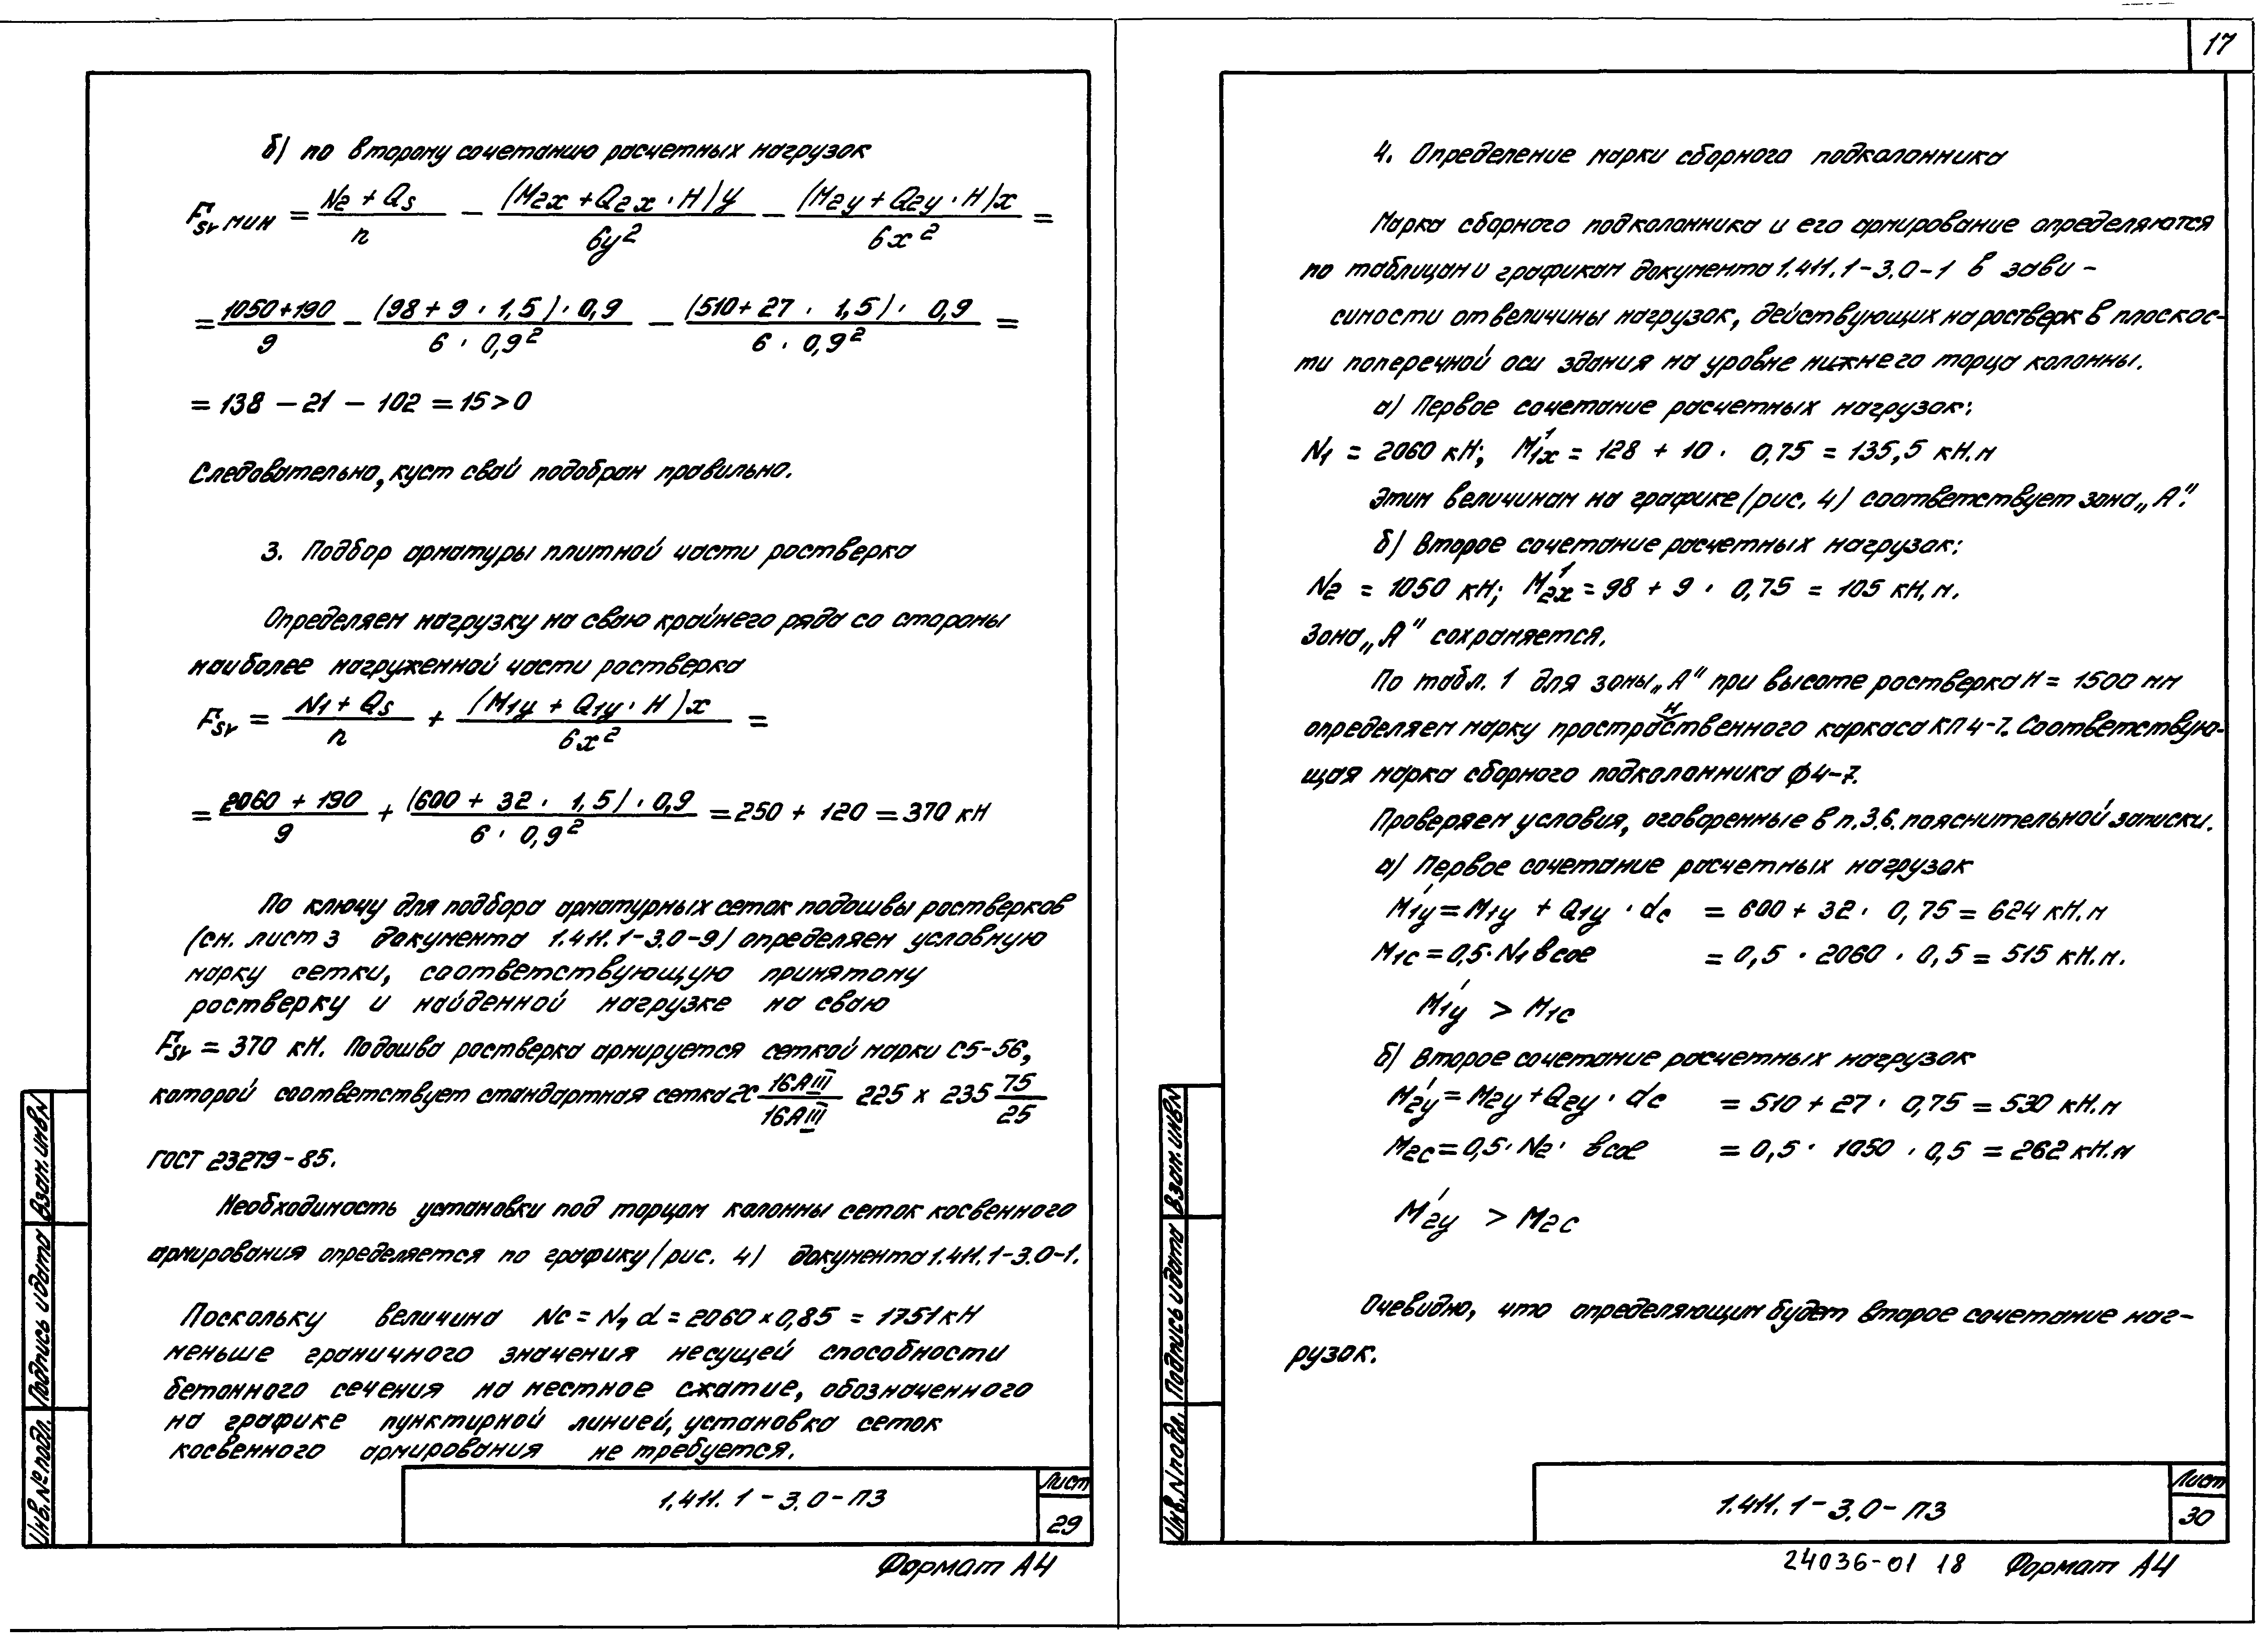 17
б) по второму сочетанию расчетных нагрузок
Fsv мин = (N2 + Qs)/n − ((M2x + Q2x · H)y)/6y² − ((M2y + Q2y · H)x)/6x² =
= (1050+190)/9 − ((98 + 9 · 1,5) · 0,9)/(6 · 0,9²) − ((510 + 27 · 1,5) · 0,9)/(6 · 0,9²) =
= 138 − 21 − 102 = 15 > 0
Следовательно, куст свай подобран правильно.
3. Подбор арматуры плитной части ростверка
Определяем нагрузку на сваю крайнего ряда со стороны
наиболее нагруженной части ростверка
Fsv = (N1 + Qs)/n + ((M1y + Q1y · H)x)/6x² =
= (2060 + 190)/9 + ((600 + 32 · 1,5) · 0,9)/(6 · 0,9²) = 250 + 120 = 370 кН
По ключу для подбора арматурных сеток подошвы ростверков
(см. лист 3 документа 1.411.1-3.0-9) определяем условную
марку сетки, соответствующую принятому
ростверку и найденной нагрузке на сваю
Fsv = 370 кН. Подошва ростверка армируется сеткой марки С5-56,
которой соответствует стандартная сетка 2С 16АIII/16АIII 225 х 235 75/25
ГОСТ 23279-85.
Необходимость установки под торцом колонны сеток косвенного
армирования определяется по графику (рис. 4) документа 1.411.1-3.0-1.
Поскольку величина Nc = N1 α = 2060 х 0,85 = 1751 кН
меньше граничного значения несущей способности
бетонного сечения на местное сжатие, обозначенного
на графике пунктирной линией, установка сеток
косвенного армирования не требуется.
Инв.№подл. Подпись и дата Взам.инв.N
1.411.1-3.0-ПЗ
Лист
29
Формат А4
4. Определение марки сборного подколонника
Марка сборного подколонника и его армирование определяются
по таблицам и графикам документа 1.411.1-3.0-1 в зави-
симости от величины нагрузок, действующих на ростверк в плоскос-
ти поперечной оси здания на уровне нижнего торца колонны.
а) Первое сочетание расчетных нагрузок:
N1 = 2060 кН; M'1x = 128 + 10 · 0,75 = 135,5 кН.м
Этим величинам на графике (рис. 4) соответствует зона „А".
б) Второе сочетание расчетных нагрузок:
N2 = 1050 кН; M'2x = 98 + 9 · 0,75 = 105 кН.м.
Зона „А" сохраняется.
По табл. 1 для зоны „А" при высоте ростверка H = 1500 мм
определяем марку пространственного каркаса КП4-7. Соответствую-
щая марка сборного подколонника Ф4-7.
Проверяем условия, оговоренные в п.3.6. пояснительной записки.
а) Первое сочетание расчетных нагрузок
M'1y = M1y + Q1y · dc = 600 + 32 · 0,75 = 624 кН.м
M1c = 0,5 · N1 всое = 0,5 · 2060 · 0,5 = 515 кН.м.
M'1y > M1c
б) Второе сочетание расчетных нагрузок
M'2y = M2y + Q2y · dc = 510 + 27 · 0,75 = 530 кН.м
M2c = 0,5 · N2 · всое = 0,5 · 1050 · 0,5 = 262 кН.м
M'2y > M2c
Очевидно, что определяющим будет второе сочетание наг-
рузок.
Инв.Nподл. Подпись и дата Взам.инв.N
1.411.1-3.0-ПЗ
Лист
30
24036-01 18 Формат А4